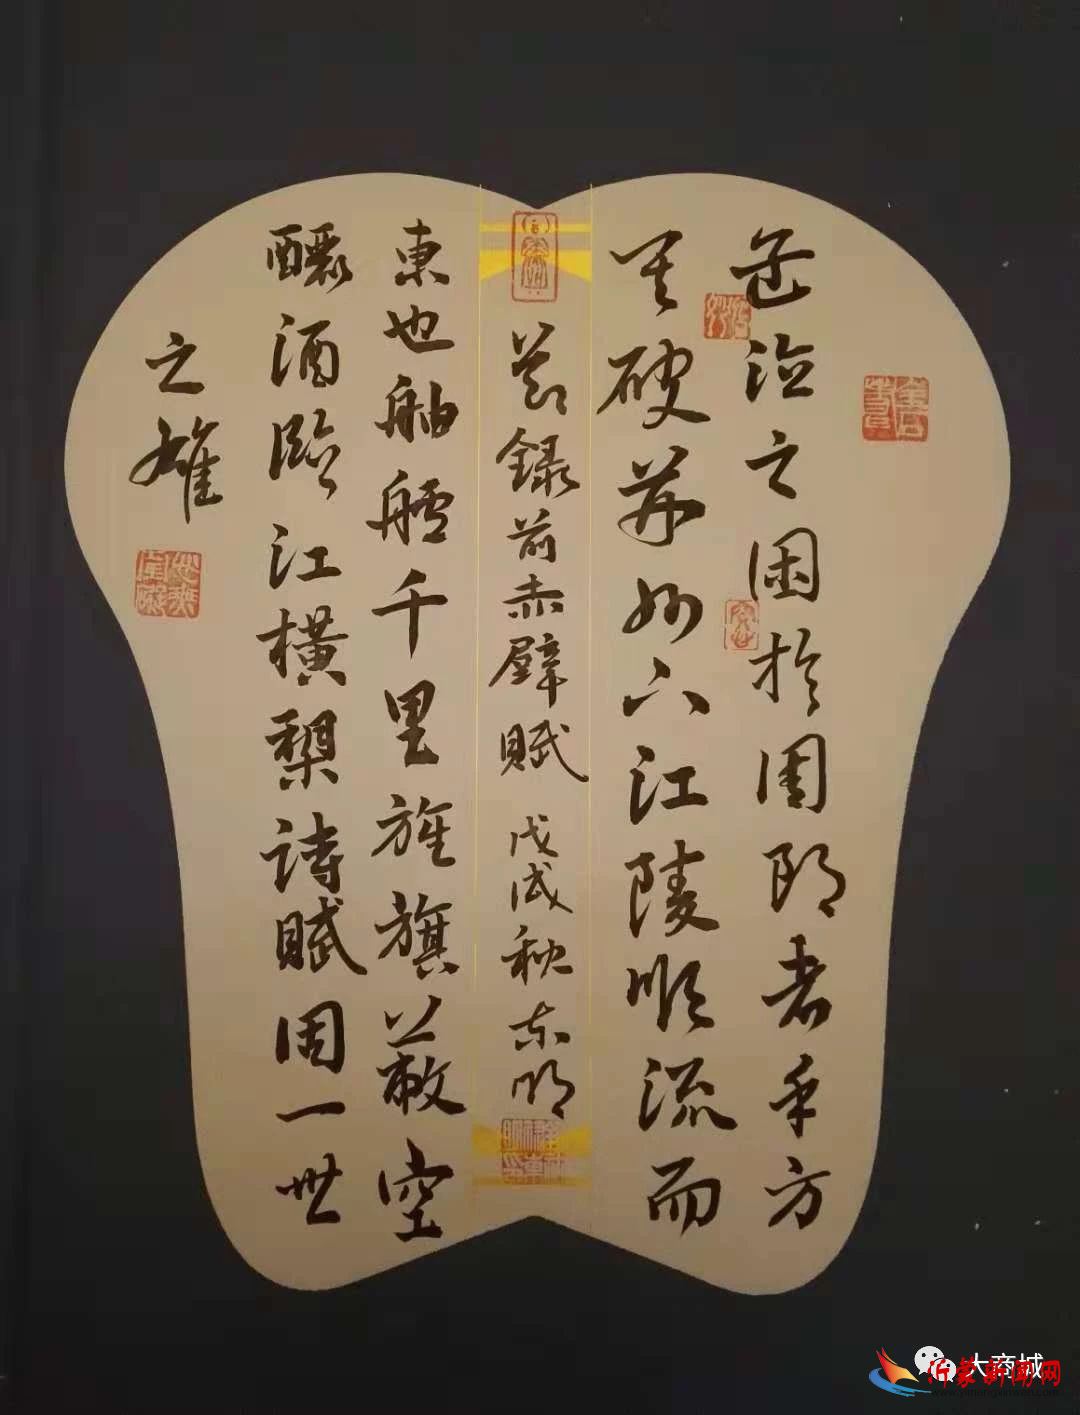 孟德之困於周郎者乎方
其破荊州下江陵順流而
節錄前赤壁賦 戊戌秋东明
東也舳艫千里旌旗蔽空
釃酒臨江橫槊詩賦固一世
之雄
大商城
沂蒙新闻网